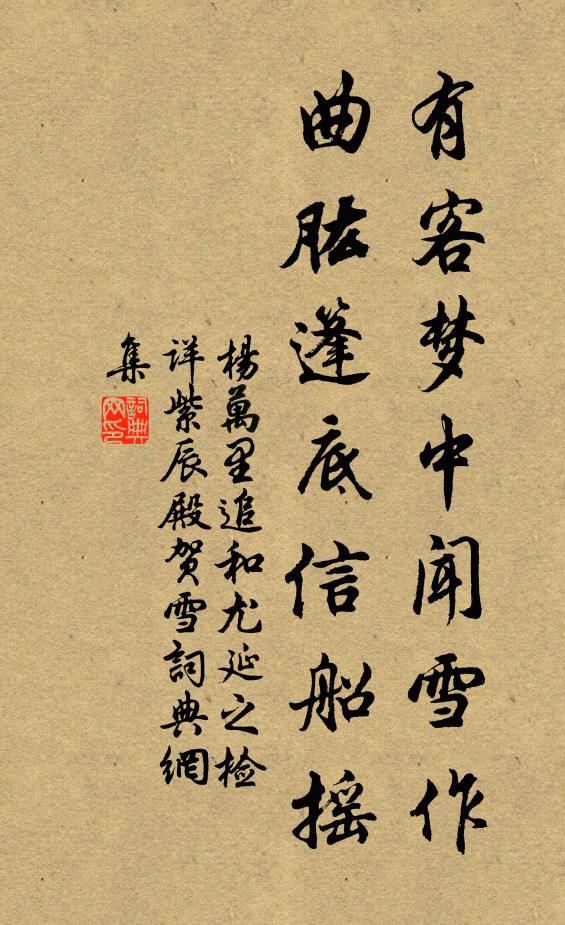 有客梦中闻雪作
曲肱篷底信船摇
楊萬里追和尤延之检
详紫辰殿贺雪詞典網
集
詞典
网印